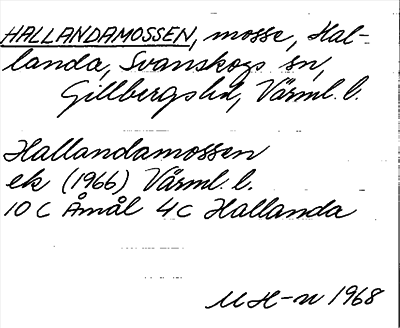 HALLANDAMOSSEN, mosse, Hal-
landa, Svanskogs sn,
Gillbergs hd, Värml. l.
Hallandamossen
ek (1966) Värml. l.
10 C Åmål 4c Hallanda
MH-n 1968